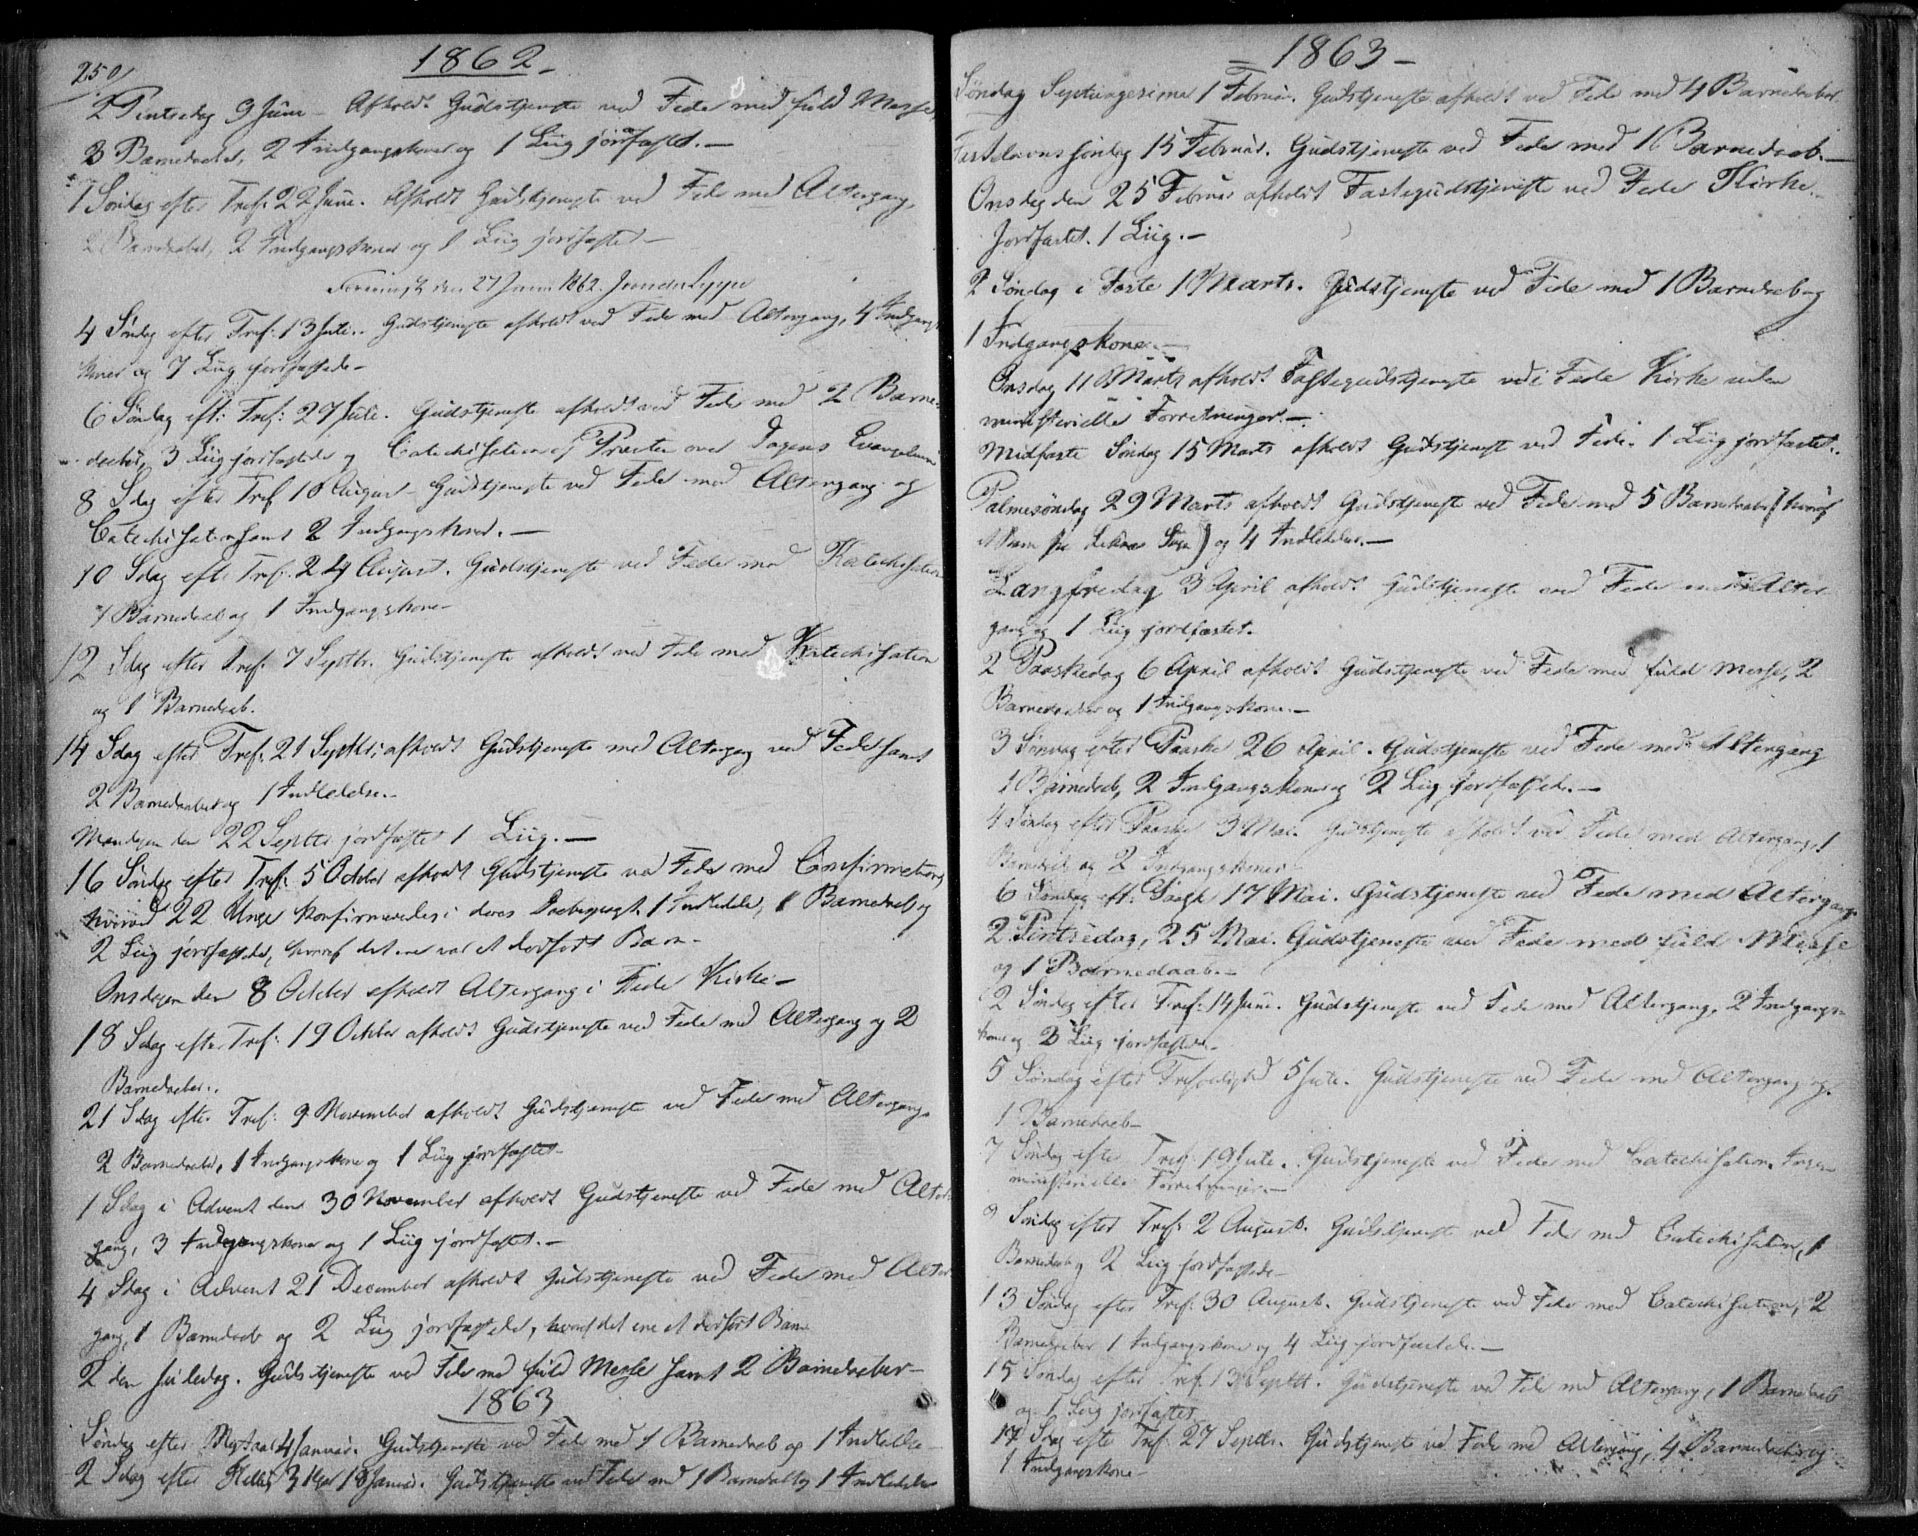 250/
1862
2 Pintsedag 9 Juni - Afholdt Gudstjeneste ved Fede med fuld Messe,
3 Barnedaaber, 2 Indgangskoner og 1 Liig jordfæstet.
1 Søndag efter Tref: 22 Juni. Afholdt Gudstjeneste ved Fede med Altergang,
2 Barnedaaber, 2 Indgangskoner og 1 Liig jordfæstet
den 27 Juni 1862.
4 Søndag efter Tref: 13 Juli. Gudstjeneste afholdt ved Fede med Altergang, 4 Indgangs
koner og 7 Liig jordfæstede
6 Søndag eft: Tref: 27 Juli. Gudstjeneste afholdt ved Fede med 2 Barne-
daaber, 3 Liig jordfæstede og Catechisation af Præsten over Dagens Evangelium
8 Sdag efter Tref 10 August - Gudstjeneste ved Fede med Altergang og
Catechisation samt 2 Indgangskoner.
10 Sdag eft. Tref. 24 August. Gudstjeneste ved Fede med Katechisation
1 Barnedaab og 1 Indgangskone
12 Sdag efter Tref: 7 Septbr. Gudstjeneste afholdt ved Fede med Katechisation
og 1 Barnedaab.
14 Sdag efter Tref: 21 Septbr. afholdt Gudstjeneste med Altergang ved Fede samt
2 Barnedaaber og 1 Indledelse.
Mandagen den 22 Septbr jordfæstet 1 Liig.
16 Søndag efter Tref: 5 October afholdt Gudstjeneste ved Fede med Confirmation,
hvorved 22 Unge konfirmeredes i deres Daabspagt. 1 Indledelse, 1 Barnedaab og
2 Liig jordfæstede, hvoraf det ene var et dødfødt Barn
Onsdagen den 8 October afholdt Altergang i Fede Kirke
18 Sdag efter Tref: 19 October afholdt Gudstjeneste ved Fede med Altergang og 2
Barnedaaber.
21 Sdag efter Tref: 9 November afholdt Gudstjeneste ved Fede med Altergang
2 Barnedaaber, 1 Indgangskone og 1 Liig jordfæstet
1 Sdag i Advent den 30 November afholdt Gudstjeneste ved Fede med Alter-
gang, 3 Indgangskoner og 1 Liig jordfæstet.
4 Sdag i Advent 21 December afholdt Gudstjeneste ved Fede med Alter
gang, 1 Barnedaab og 2 Liig jordfæstede, hvoraf det ene et dødfødt Barn
2den Juledag. Gudstjeneste ved Fede med fuld Messe samt 2 Barnedaaber
1863
Søndag efter Nytaar 4 Januar. Gudstjeneste ved Fede med 1 Barnedaab og 1 Indledelse
2 Sdag efter Hellig 3 Kger 18 Januar. Gudstjeneste ved Fede med 1 Barnedaab og 1 Indledelse
1863
Søndag Septuagesima 1 Februar. Gudstjeneste afholdt ved Fede med 4 Barnedaaber
Fastelavns søndag 15 Februar. Gudstjeneste ved Fede med 1 Barnedaab.
Onsdag den 25 Februar afholdt Fastegudstjeneste ved Fede Kirke.
Jordfæstet 1 Liig.
2 Søndag i Faste 1 Marts. Gudstjeneste ved Fede med 1 Barnedaab og
1 Indgangskone.
Onsdag 11 Marts afholdt Fastegudstjeneste i Fede Kirke uden
ministerielle Forretninger.
Midfaste Søndag 15 Marts afholdt Gudstjeneste ved Fede. 1 Liig jordfæstet.
Palmesøndag 29 Marts afholdt Gudstjeneste ved Fede med 5 Barnedaaber (hvoraf
et Barn fra Sogn) og 4 Indledelser.
Langfredag 3 April afholdt Gudstjeneste ved Fede med Alter
gang og 1 Liig jordfæstet.
2 Paaskedag 6 April afholdt Gudstjeneste ved Fede med fuld Messe, 2
Barnedaaber og 1 Indgangskone.
3 Søndag efter Paaske 26 April. Gudstjeneste ved Fede med Altergang
1 Barnedaab, 2 Indgangskoner og 2 Liig jordfæstede.
4 Søndag efter Paaske 3 Mai. Gudstjeneste afholdt ved Fede med Altergang, 1
Barnedaab og 2 Indgangskoner
6 Søndag eft. Paaske 17 Mai. Gudstjeneste ved Fede med Altergang
2 Pintsedag, 25 Mai. Gudstjeneste ved Fede med fuld Messe
og 1 Barnedaab.
2 Søndag efter Tref: 14 Juni. Gudstjeneste ved Fede med Altergang, 2 Indgangs-
koner og 2 Liig jordfæstede
5 Søndag efter Trefoldighed 5 Juli. Gudstjeneste ved Fede med Altergang og
1 Barnedaab
7 Søndag efter Tref: 19 Juli. Gudstjeneste ved Fede med Catechisation. Ingen
ministerielle Forretninger.
9 Søndag efter Tref: 2 August. Gudstjeneste ved Fede med Catechisation, 1
Barnedaab og 2 Liig jordfæstede
13 Søndag efter Tref: 30 August. Gudstjeneste ved Fede med Catechisation, 2
Barnedaaber 1 Indgangskone og 4 Liig jordfæstede.
15 Søndag efter Tref. 13 Septbr. Gudstjeneste ved Fede med Altergang, 1 Barnedaab
og 1 Liig jordfæstet
17 Sdag efter Tref 27 Septbr. Gudstjeneste ved Fede med Altergang, 4 Barnedaaber og
1 Indgangskone